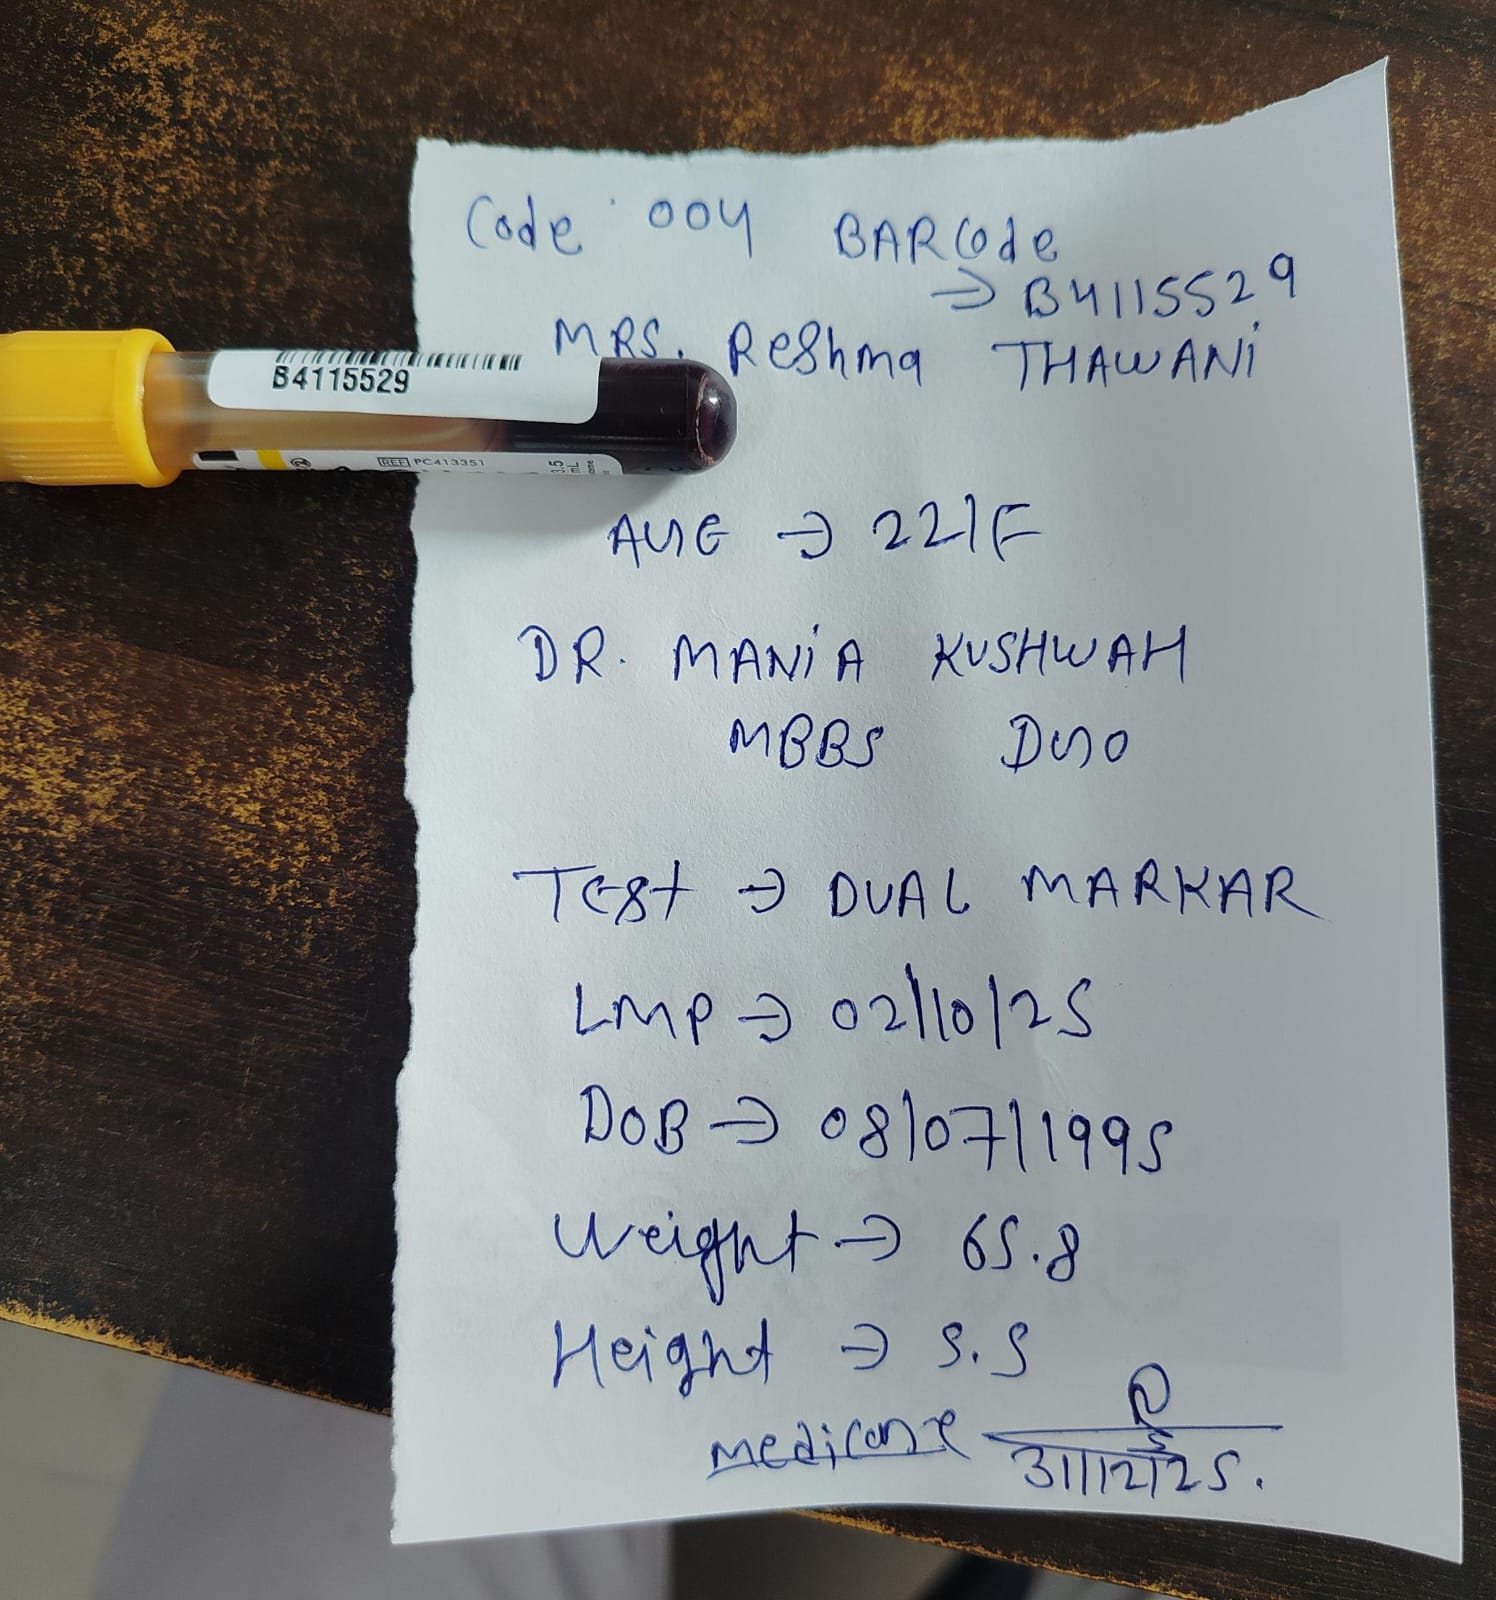 Code 004 BARCode
→ B4115529
MRS. Reshma THAWANI
B4115529
REF PC413351
3.5 mL
AGE → 22/F
DR. MANiA KUSHWAH
MBBS DGO
Test → DUAL MARKAR
LMP → 02/10/25
DOB → 08/07/1995
Weight → 65.8
Height → 5.5
medicare
31/12/25.